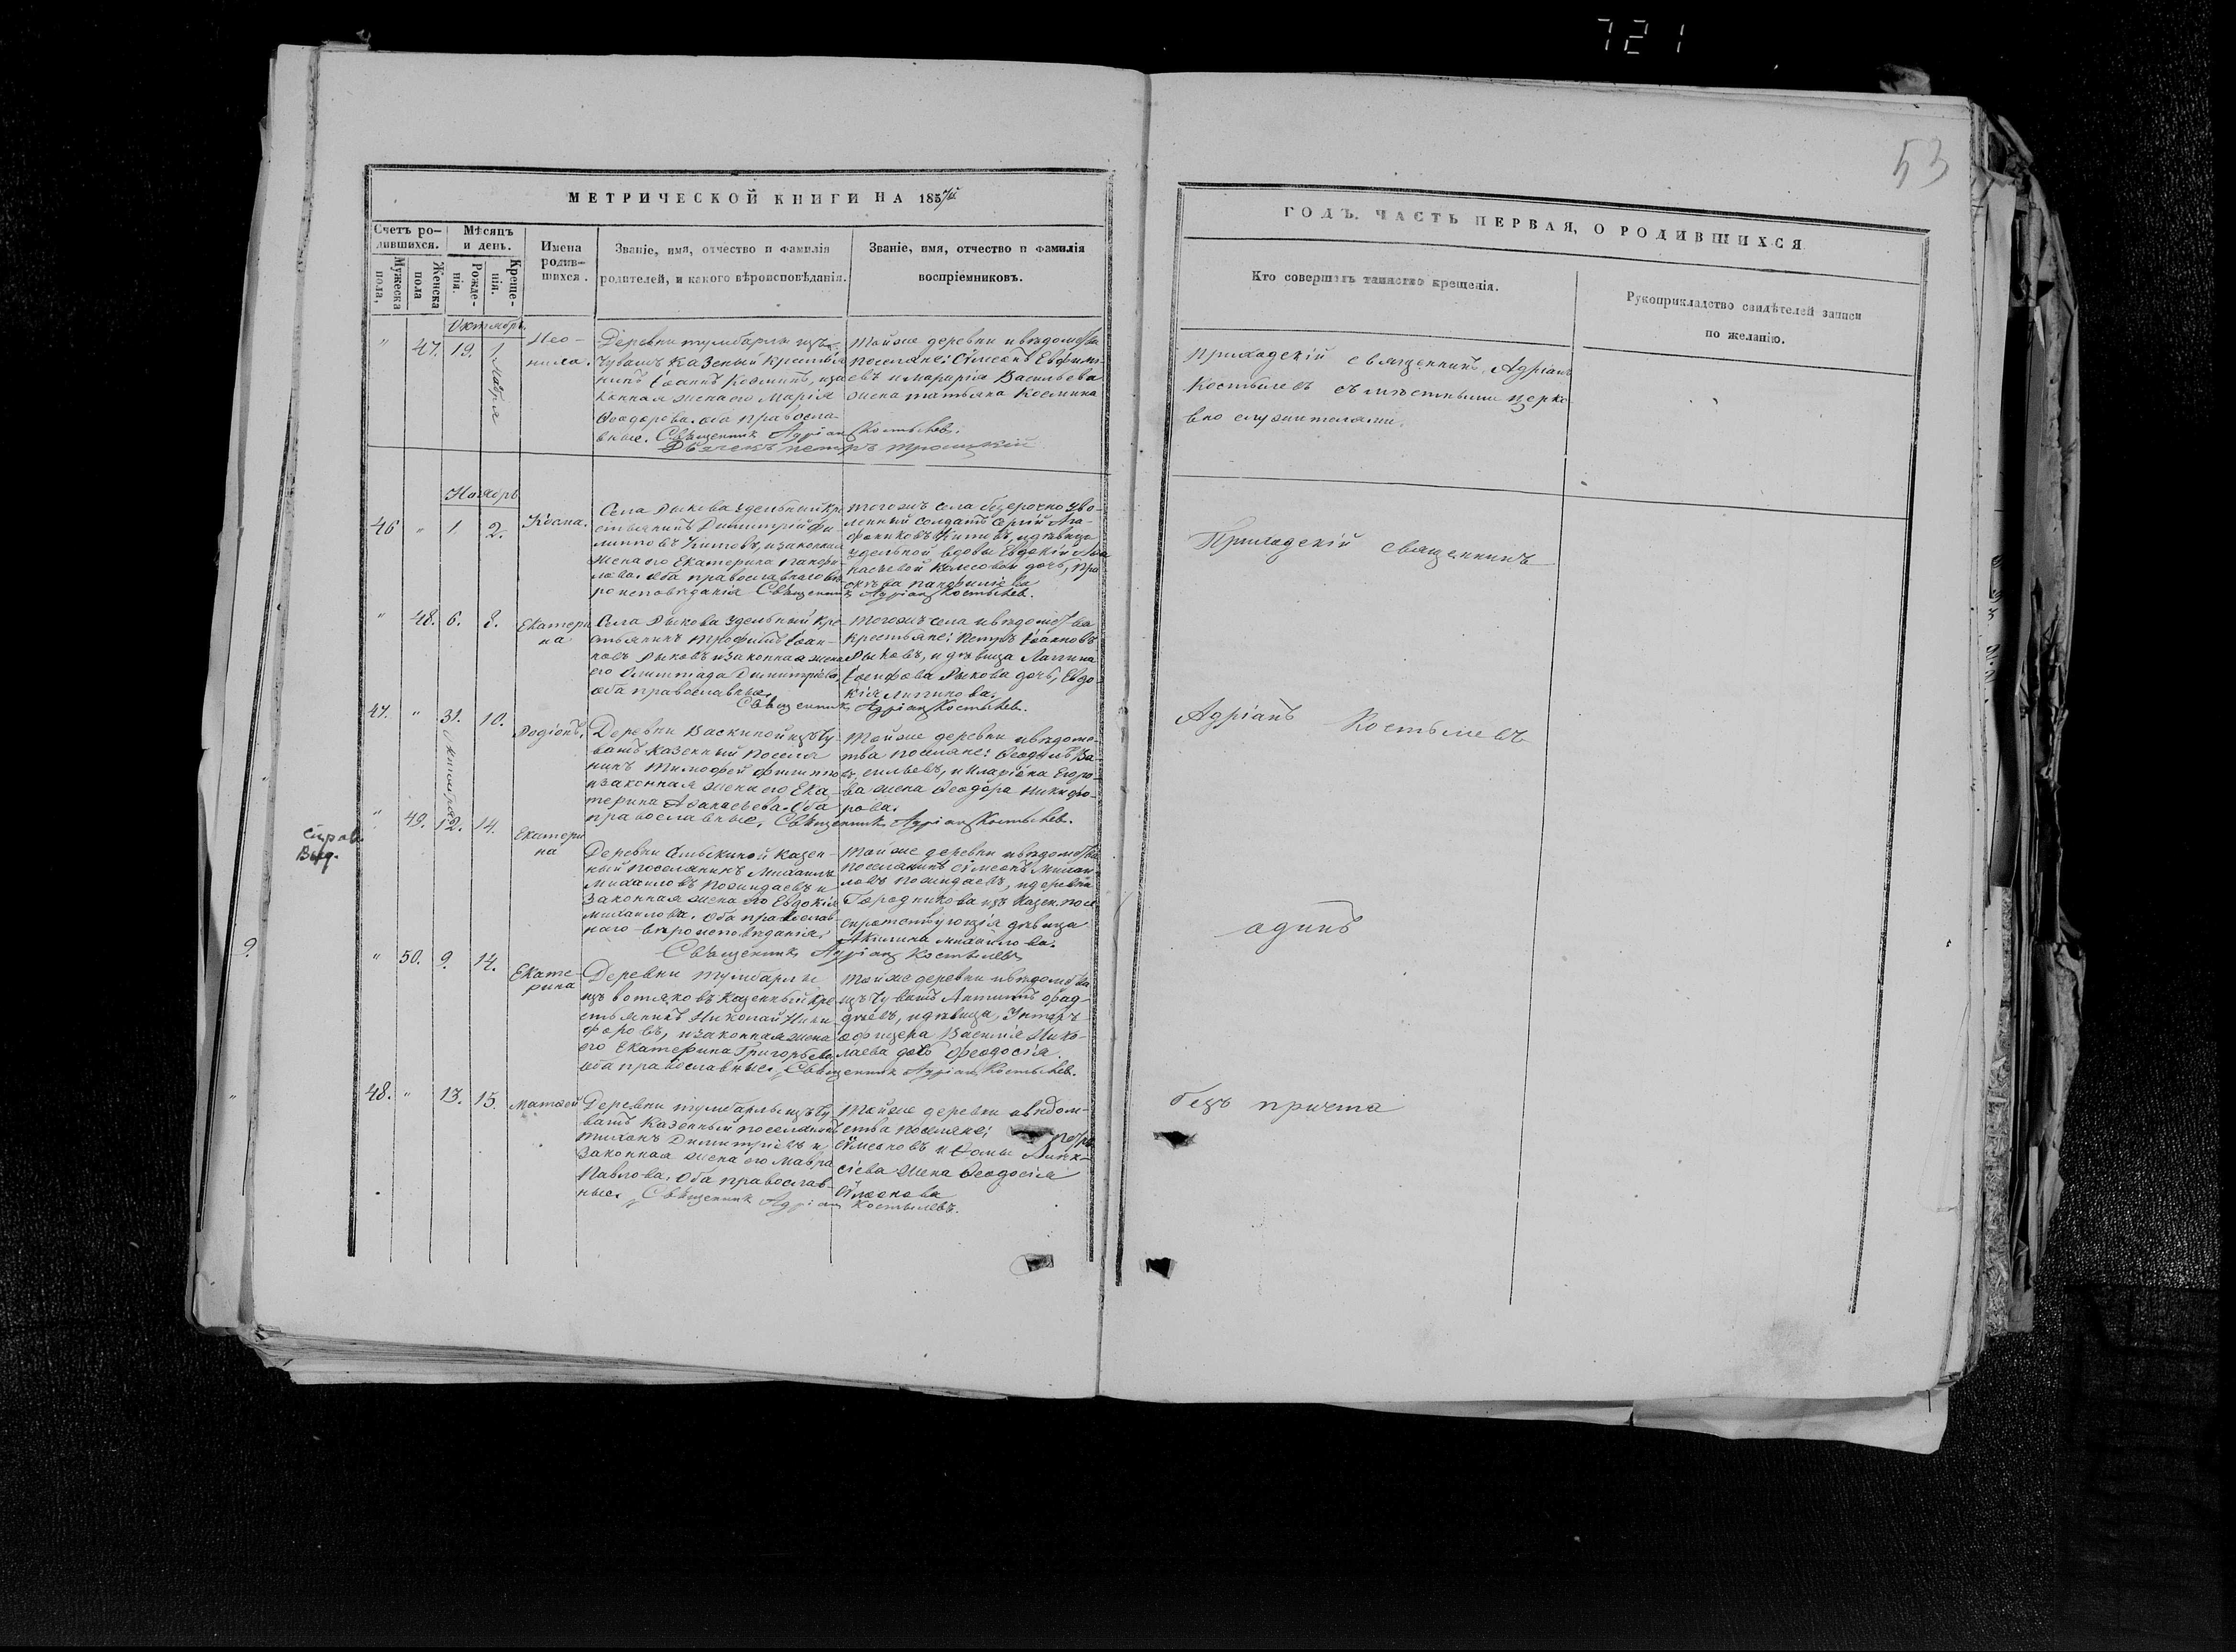 721
53
МЕТРИЧЕСКОЙ КНИГИ НА 185
ГОДЪ. ЧАСТЬ ПЕРВАЯ, О РОДИВШИХСЯ
Счетъ ро-
лившихся.
Мѣсяцъ
и день.
Имена
родив-
шихся.
Званіе, имя, отчество и фамилія
родителей, и какого вѣроисповѣданія.
Званіе, имя, отчество и фамилія
воспріемниковъ.
Мужеска
пола.
Женска
пола
Рожде-
нія.
Креще-
нія.
Кто совершалъ таинство крещенія.
Рукоприкладство свидѣтелей записи
по желанію.
Октябрь.
" 47. 19. 1
Нео-
нила.
Деревни тумбарли изъ
Чувашъ казеный крестья
нинъ Іоаннъ Козминъ, иза
конная жена его Марія
Ѳеодорова. оба правосла-
вные. Священник Адріан Костылев.
Дьячекъ петръ троицкій
Тойже деревни ивѣдомства
поселяне: Сѵмеонъ Евфим
евъ Васильева
жена татьяна Козмина
Приходскій священникъ, Адріанъ
Костылевъ съ мѣстными церко
вно служителями.
Ноябрь
46 " 1. 2.
Косма.
Села Рыкова удельный кре
стьянинъ Димитрій Фи-
липповъ Китовъ, и законная
жена его Екатерина панфи-
лова. оба православнаго вѣ
роисповѣданія Священник Адріан Костылев.
тогожъ села безсрочно уво-
ленный солдатъ Сергій Ага-
фониковъ Китовъ, идѣвица
удельной вдовы Евдокіи
дочь, пра
Приходскій священникъ
" 48. 6. 8.
Екатери
на
Села Рыкова удельный кре-
стьянинъ Трофимъ Іоан-
новъ Рыковъ и законная жена
его Олимпіада Димитріева
оба православные.
Священник Адріан Костылев.
тогожъ села ивѣдомства
крестьяне: Петръ Іоанновъ
Рыковъ, и дѣвица Лаггина
Іосифова Рыкова дочь, Евдо-
кія Лаггинова.
47. " 31. 10.
Октября
Родіонъ.
Деревни Васкиной изъ Чу-
вашъ казенный поселя
нинъ Тимофей филиппов
и законная жена его Ека-
терина Аѳанасьева. Оба
православные, Священник Адріан Костылев.
Тойже деревни ивѣдомс-
тва поселяне: Ва-
сильевъ, и Иларіона Егоро-
ва жена Ѳеодора Никифо-
рова.
Адріанъ Костылевъ
справ.
Выд.
" 49. 12. 14.
Екатери
на
Деревни казен-
ный поселянинъ Михаилъ
Михаиловъ и
законная жена его Евдокія
Михаилова. Оба православ-
наго вѣроисповѣданія.
Священник Адріан Костылевъ
Тойже деревни ивѣдомства
поселянинъ Сѵмеонъ Михаи-
ловъ и деревни
Городникова изъ казен. посе
сиротствующія дѣвица
Акилина Михайлова.
одинъ
9.
" 50. 9. 14.
Екате-
рина
Деревни тумбарли
изъ вотяковъ казенный кре
стьянинъ Николай Ники
форовъ, и законная жена
его Екатерина Григорьева
оба православные, Священник Адріан Костылев.
Тойже деревни ивѣдомства
изъ Чувашъ Антипъ Фад-
дѣевъ, и дѣвица, Унтеръ-
офицера Василія Нико-
лаева дочь Ѳеодосія.
48. " 13. 15.
Матѳей
Деревни тумбарлы изъ Чу
вашъ казенный поселянинъ
Тихонъ Димитріевъ и
законная жена его Мавра
Павлова. Оба православ-
ные. Священник Адріан Костылевъ.
Тойже деревни ивѣдом-
ства поселяне; Петръ
Сѵмеоновъ и Ѳомы Алек-
сіева жена Ѳеодосія
Сѵмеонова
безъ причта